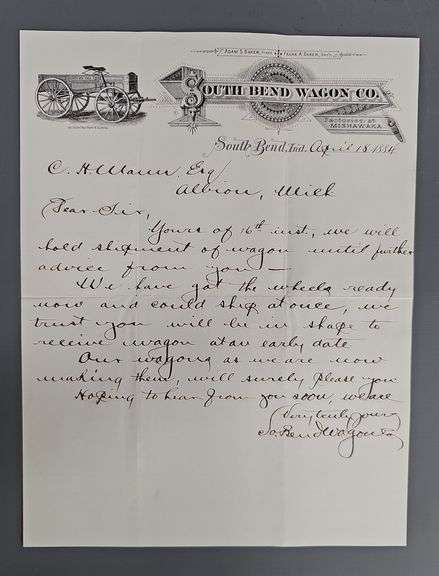 ADAM S. BAKER, PRES. FRANK A. BAKER, SEC'Y.
SOUTH BEND WAGON CO.
Factories at
MISHAWAKA
South Bend, Ind. April 18 1884
C. H. Mann, Esq
Albion, Mich
Dear Sir,
Yours of 16th inst, we will
hold shipment of wagon until further
advice from you —
We have got the wheels ready
now and could ship at once, we
trust you will be in shape to
receive wagon at an early date
Our wagons as we are now
making them, will surely please you
Hoping to hear from you soon, we are
Very truly yours
So. Bend Wagon Co